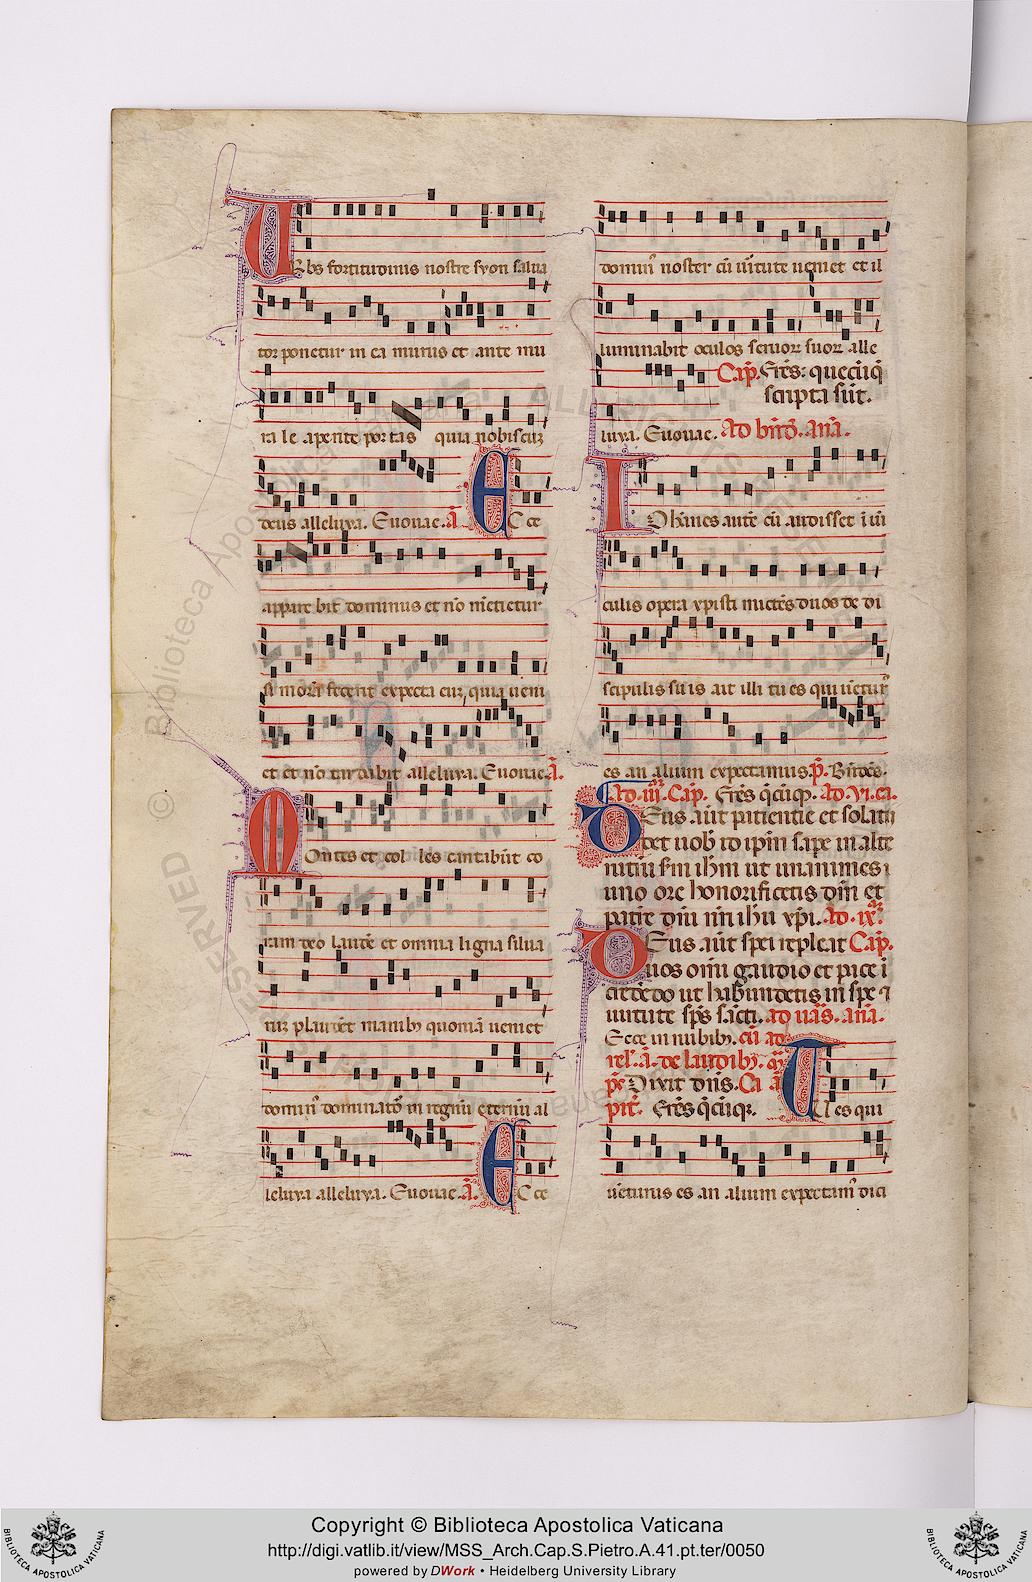 Urbs fortitudinis nostre syon salua
tor ponetur in ea murus et ante mu
ra le aperite portas quia nobiscum
deus alleluya. Euouae. A. Ecce
appare bit dominus et non mentietur
si moram fecerit expecta eum, quia ueni
et et non tardabit alleluya. Euouae. A.
Montes et col les cantabunt co
ram deo laudem et omnia ligna silua
rum plaudent manibus quoniam ueniet
dominus dominator in regnum eternum al
leluya alleluya. Euouae. A. Ecce
dominus noster cum uirtute ueniet et il
luminabit oculos seruorum suorum alle
Cap. Fratres: quecumque
scripta sunt.
luya. Euouae. Ad bened. ana.
Iohannes autem cum audisset i uin
culis opera xpisti mittens duos de di
scipulis suis ait illi tu es qui uenturus
es an alium expectamus. ps. Benedictus.
Ad .iij. Cap. Fratres quecumque. Ad .vi. ca.
Deus autem patientie et solatii
det nobis id ipsum sape in alte
rutrum secundum ihm ut unanimes i
uno ore honorificetis deum et
patrem domini nostri ihu xpi. Ad .ix.
Deus autem spei repleat Cap.
uos omni gaudio et pace i
credendo ut habundetis in spe et
uirtute sps sancti. ad uesperas. ana.
Ecce in nubibus. cum ad
rel. a. de laudibus.
ps Dixit dns. Cum a
pit. Fratres quecumque. Tu es qui
uenturus es an alium expectamus dica
© Biblioteca Apostolica Vaticana ALL RIGHTS RESERVED
Copyright © Biblioteca Apostolica Vaticana
http://digi.vatlib.it/view/MSS_Arch.Cap.S.Pietro.A.41.pt.ter/0050
powered by DWork • Heidelberg University Library
BIBLIOTECA APOSTOLICA VATICANA
BIBLIOTECA APOSTOLICA VATICANA